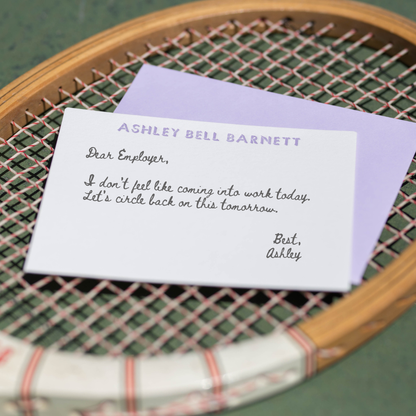 ASHLEY BELL BARNETT
Dear Employer,
I don't feel like coming into work today.
Let's circle back on this tomorrow.
Best,
Ashley